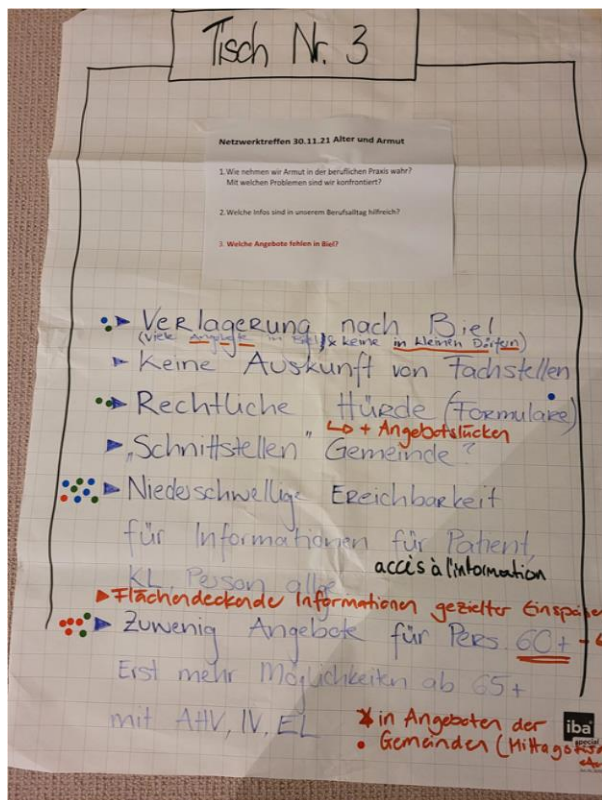 Tisch Nr. 3
Netzwerktreffen 30.11.21 Alter und Armut
1. Wie nehmen wir Armut in der beruflichen Praxis wahr?
Mit welchen Problemen sind wir konfrontiert?
2. Welche Infos sind in unserem Berufsalltag hilfreich?
3. Welche Angebote fehlen in Biel?
Verlagerung nach Biel
(viele Angebote in Biel & keine in kleinen Dörfern)
Keine Auskunft von Fachstellen
Rechtliche Hürde (Formulare)
↳ + Angebotslücken
"Schnittstellen" Gemeinde?
Niederschwellige Ereichbarkeit
für Informationen für Patient,
accès à l'information
KL, Person allge
Flächendeckende Informationen gezielter
Zuwenig Angebote für Pers. 60+
Erst mehr Möglichkeiten ab 65+
mit AHV, IV, EL
* in Angeboten der
Gemeinden
iba